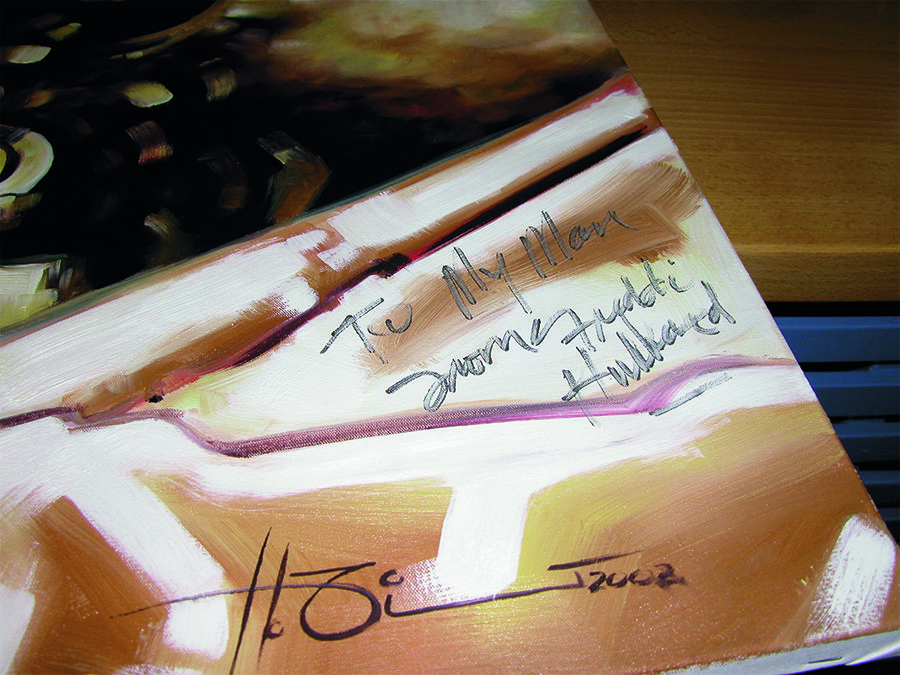 To My Man
Freddi
Hubbard
2002